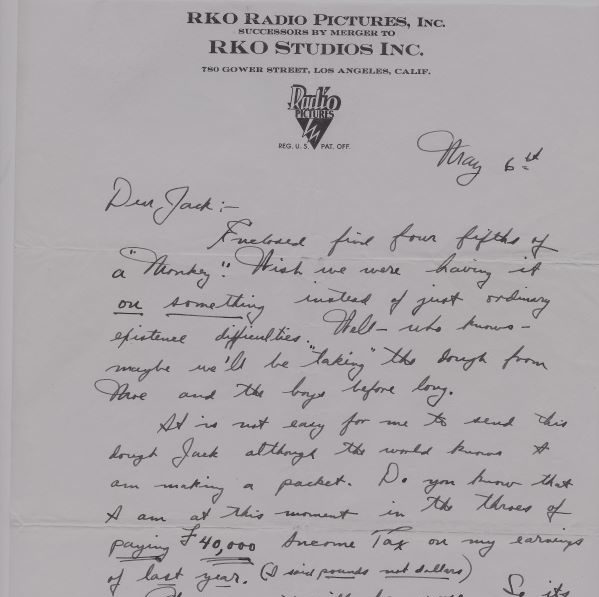 RKO RADIO PICTURES, INC.
SUCCESSORS BY MERGER TO
RKO STUDIOS INC.
780 GOWER STREET, LOS ANGELES, CALIF.
Radio
PICTURES
REG. U. S. PAT. OFF.
May 6th
Dear Jack:-
Enclosed find four fifths of
a "Monkey". Wish we were having it
on something instead of just ordinary
existence difficulties. Well - who knows -
maybe we'll be "taking" the dough from
Moe and the boys before long.
It is not easy for me to send this
dough Jack although the world knows I
am making a packet. Do you know that
I am at this moment in the throes of
paying £40,000 Income Tax on my earnings
of last year. (I said pounds not dollars)
So its